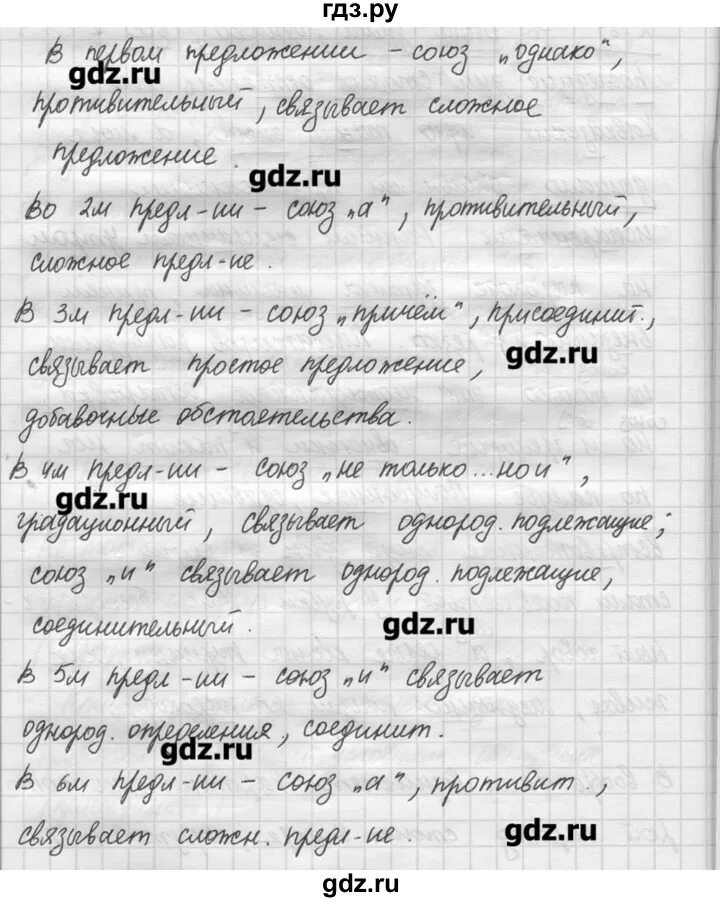 гдз.ру
В первом предложении – союз „однако",
gdz.ru
противительный, связывает сложное
предложение.
gdz.ru
Во 2м предл-ии – союз „а", противительный,
сложное предл-ие.
В 3м предл-ии – союз „причём", присоединит.,
gdz.ru
связывает простое предложение,
добавочные обстоятельства.
В 4м предл-ии – союз „не только...но и",
gdz.ru
градационный, связывает однород. подлежащие;
союз „и" связывает однород. подлежащие,
gdz.ru
соединительный.
В 5м предл-ии – союз „и" связывает
однород. определения, соединит.
gdz.ru
В 6м предл-ии – союз „а", противит.,
gdz.ru
связывает сложн. предл-ие.
gdz.ru